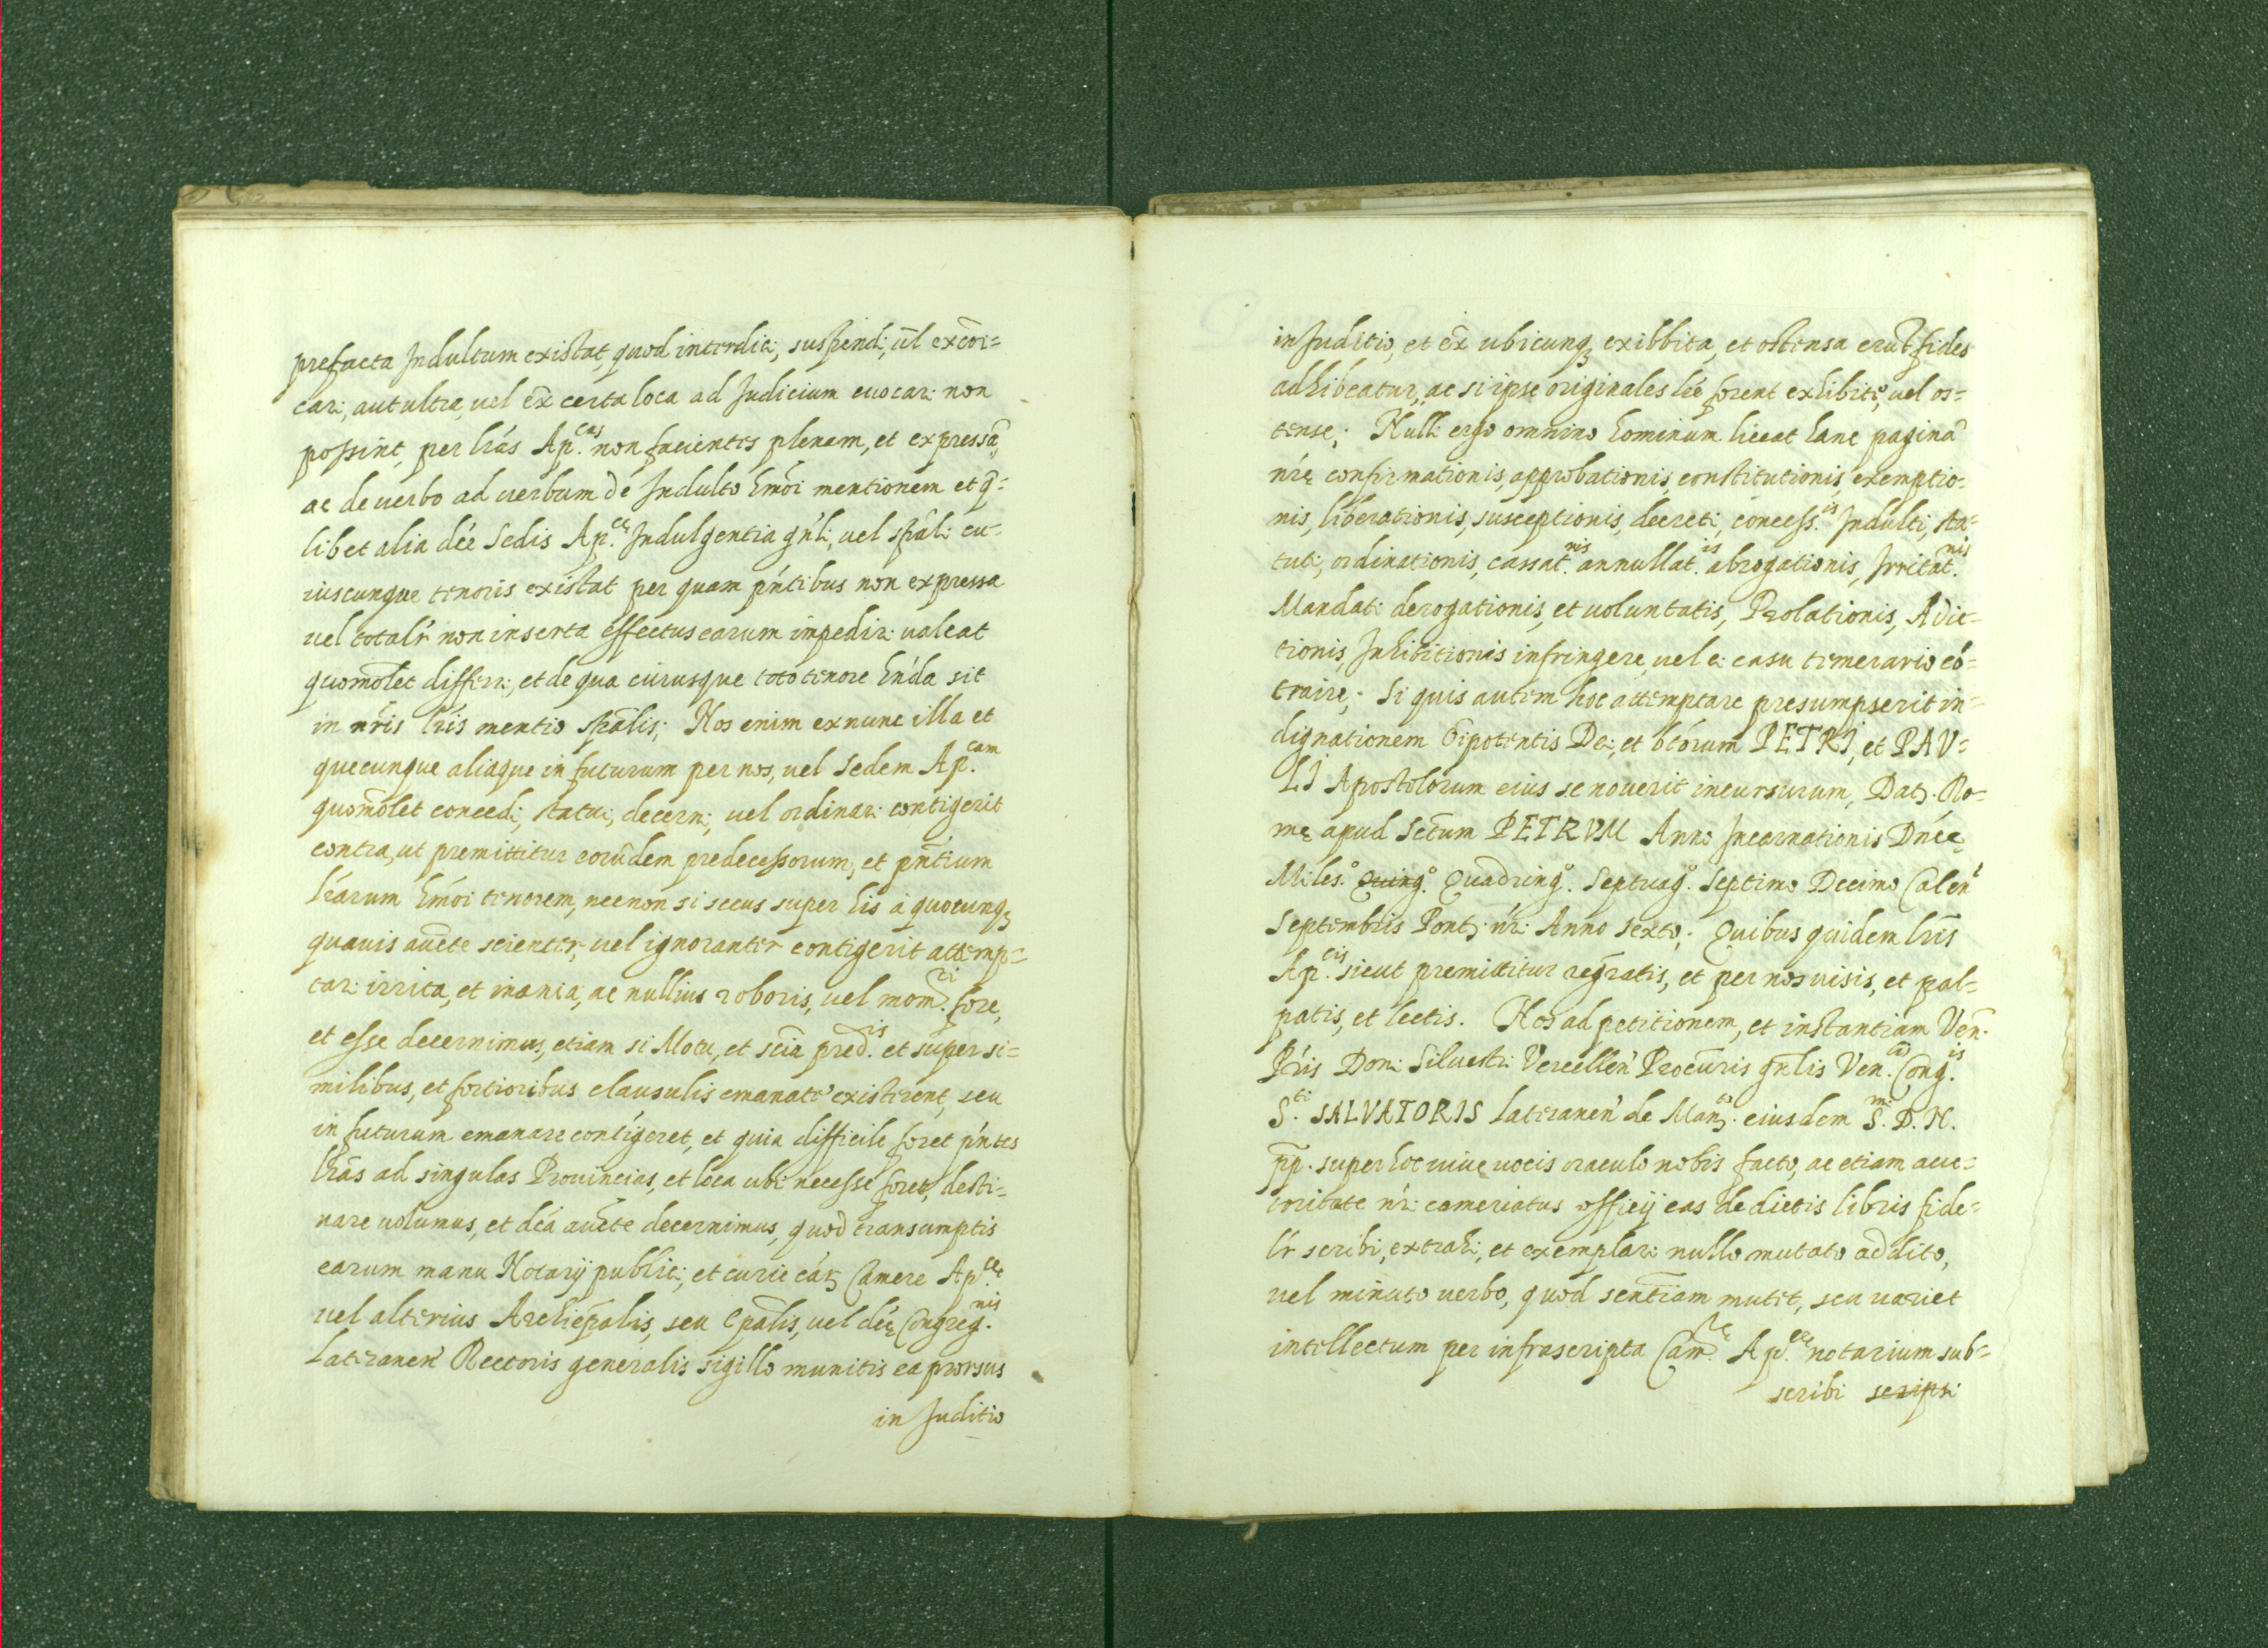 prefacta Indultum existat, quod interdici, suspendi, ul̄ excōi=
cari, aut ultra, uel ex̄ certa loca ad Judicium euocari non
possint, per lr̄as Ap.cas non facientes plenam, et expressā,
ac de uerbo ad uerbum de Indulto hmōi mentionem et q̄=
libet alia dc̄e Sedis Ap.ce Indulgentia gn̄li, uel spāli cu=
iuscunque tenoris existat per quam pn̄tibus non expressa
uel totalr̄ non inserta effectus earum impediri ualeat
quomōlet differri, et de qua cuiusque toto tenore hn̄da sit
in nr̄is lr̄is mentio spālis; Nos enim ex nunc illa et
quecunque aliaque in futurum per nos, uel Sedem Ap.cam
quomōlet concedi, statui, decerni, uel ordinari contigerit
contra, ut premittitur eorūdem predecessorum, et pn̄tium
lr̄arum hmōi tenorem, necnon si secus super his à quocunqȝ
quauis auc̄te scienter, uel ignoranter contigerit attemp=
tari irrita, et inania, ac nullius roboris, uel mom.ti fore,
et esse decernimus, etiam si Motu, et sciā pred.is et super si=
milibus, et fortioribus clausulis emanate existerent, seu
in futurum emanare contigeret, et quia difficile foret pn̄tes
lr̄as ad singulas Prouincias, et loca ubi necesse foret, desti=
nare uolumus, et dc̄a auc̄te decernimus, quod transumptis
earum manu Notarij publici, et curie cáȝ Camere Ap.ce
uel alterius Archiepālis, seu Epālis, uel dc̄e Congreg.nis
Lateranen̄ Rectoris generalis sigillo munitis ea prorsus
in Juditio
in Juditio, et ex̄ ubicunqȝ exibbita, et ostensa erūt fides
adhibeatur, ac si ipse originales lr̄e forent exhibite, uel os=
tense; Nulli ergo omnino hominum liceat hanc paginā
nr̄e confirmationis, approbationis, constitutionis, exemptio=
nis, liberationis, susceptionis, decreti, concess.is Indulti, sta=
tuti, ordinationis, cassat.nis annullat.is abrogationis, Irritat.nis
Mandati derogationis, et uoluntatis, Prolationis, Adic=
tionis, Inhibitionis infringere, uel ei casu temerario cō=
traire; Si quis autem hoc attemptare presumpserit in=
dignationem Oīpotentis Dei, et btōrum PETRI, et PAV=
LI Apostolorum eius se nouerit incursurum, Datȝ. Ro=
me apud Sctūm PETRVM Anno Incarnationis Dn̄ice
Miles.o Quing.o Quadring.o Septuag.o Septimo Decimo Calen̄
Septembris Pontȝ nr̄i Anno Sexto; Quibus quidem lr̄is
Ap.cis sicut premittitur regr̄atis, et per nos uisis, et pal=
patis, et lectis. Nos ad petitionem, et instantiam Ven̄.
Pr̄is Doni Siluestri Vercellen̄ Procur̄is gn̄lis Ven. Cong.is
S.ti SALVATORIS Lateranen̄ de Manȝ. eiusdem S.mi D. N.
pp̄. super hoc uiue uocis oraculo nobis facto, ac etiam auc=
toritate nr̄i cameriatus officij eas de dictis libris fide=
lr̄ scribi, extrahi, et exemplari nullo mutato addito,
uel minuto uerbo, quod sentn̄iam mutet, seu uariet
intellectum per infrascripta Cam.re Ap.ce notarium sub=
scribi scripsi